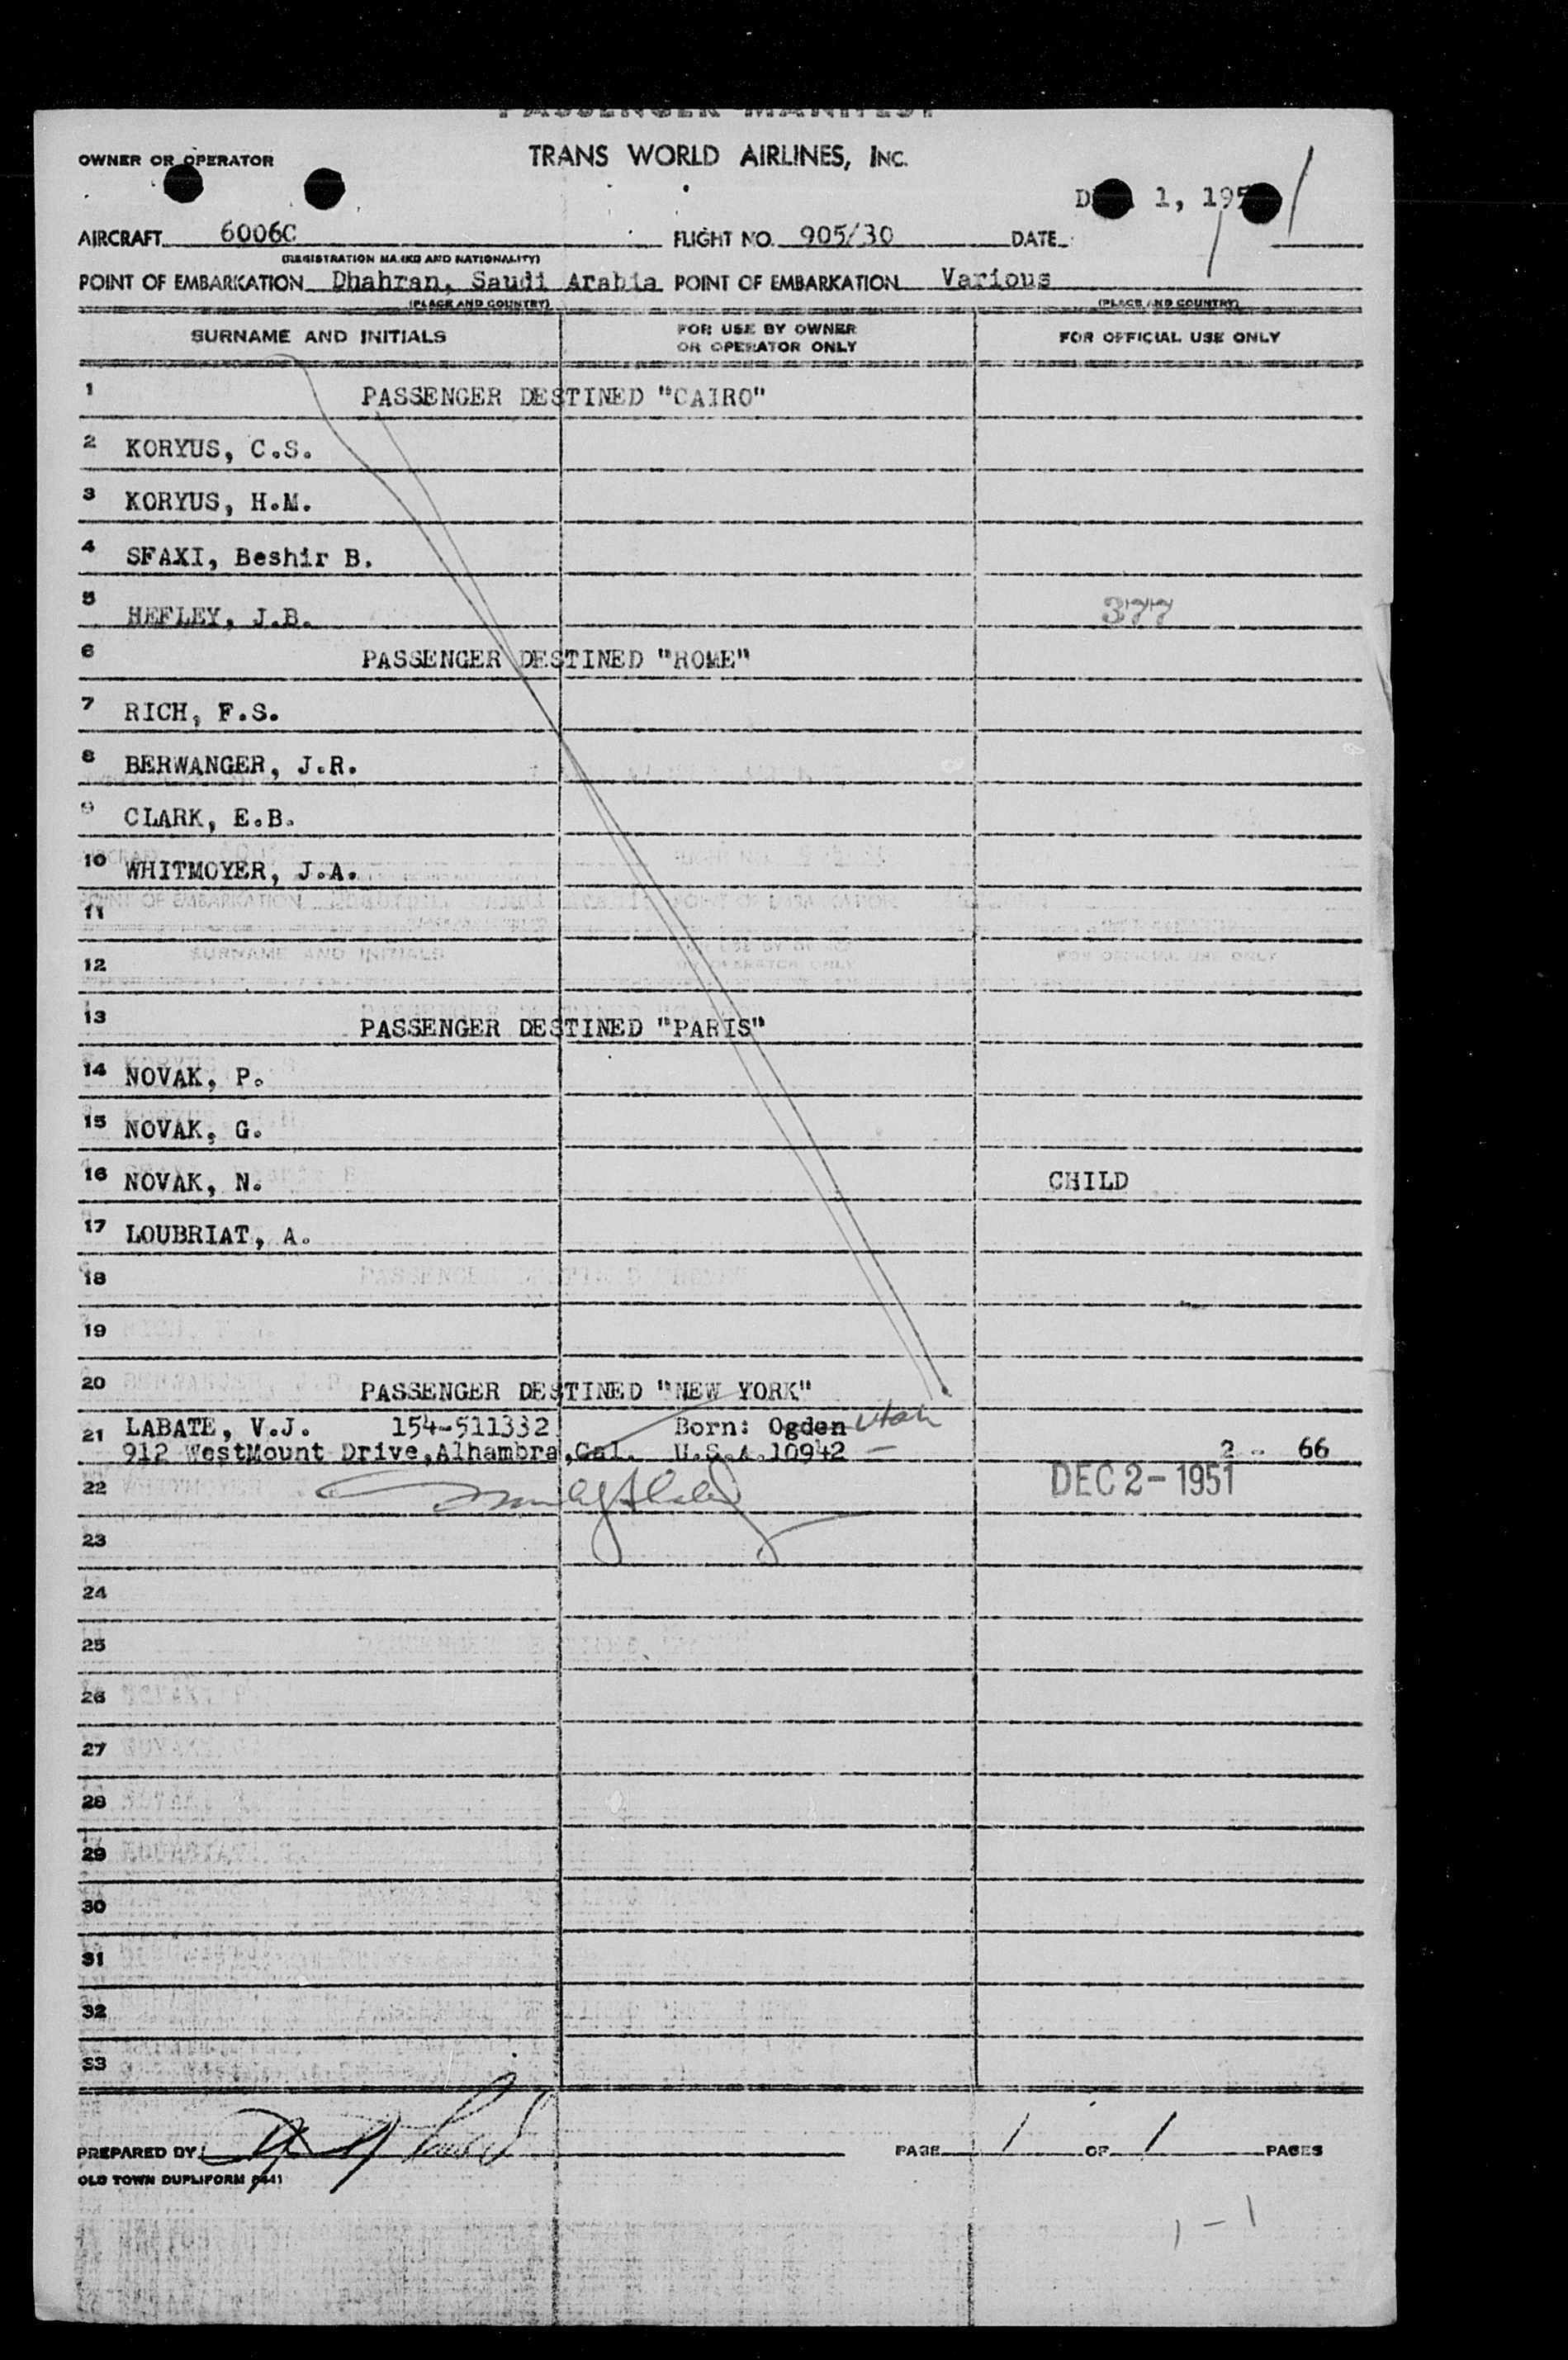 PASSENGER MANIFEST
OWNER OR OPERATOR TRANS WORLD AIRLINES, INC.
1, 195
AIRCRAFT 6006C FLIGHT NO. 905/30 DATE
(REGISTRATION MARKS AND NATIONALITY)
POINT OF EMBARKATION Dhahran, Saudi Arabia POINT OF EMBARKATION Various
(PLACE AND COUNTRY) (PLACE AND COUNTRY)
SURNAME AND INITIALS FOR USE BY OWNER OR OPERATOR ONLY FOR OFFICIAL USE ONLY
1 PASSENGER DESTINED "CAIRO"
2 KORYUS, C.S.
3 KORYUS, H.M.
4 SFAXI, Beshir B.
5 HEFLEY, J.B. 377
6 PASSENGER DESTINED "ROME"
7 RICH, F.S.
8 BERWANGER, J.R.
9 CLARK, E.B.
10 WHITMOYER, J.A.
11
12
13 PASSENGER DESTINED "PARIS"
14 NOVAK, P.
15 NOVAK, G.
16 NOVAK, N. CHILD
17 LOUBRIAT, A.
18
19
20 PASSENGER DESTINED "NEW YORK"
21 LABATE, V.J. 154-511332 Born: Ogden Utah
912 WestMount Drive,Alhambra,Cal. U.S.A.10942 - 2 - 66
22 DEC 2-1951
23
24
25
26
27
28
29
30
31
32
33
PREPARED BY PAGE 1 OF 1 PAGES
OLD TOWN DUPLIFORM
1-1